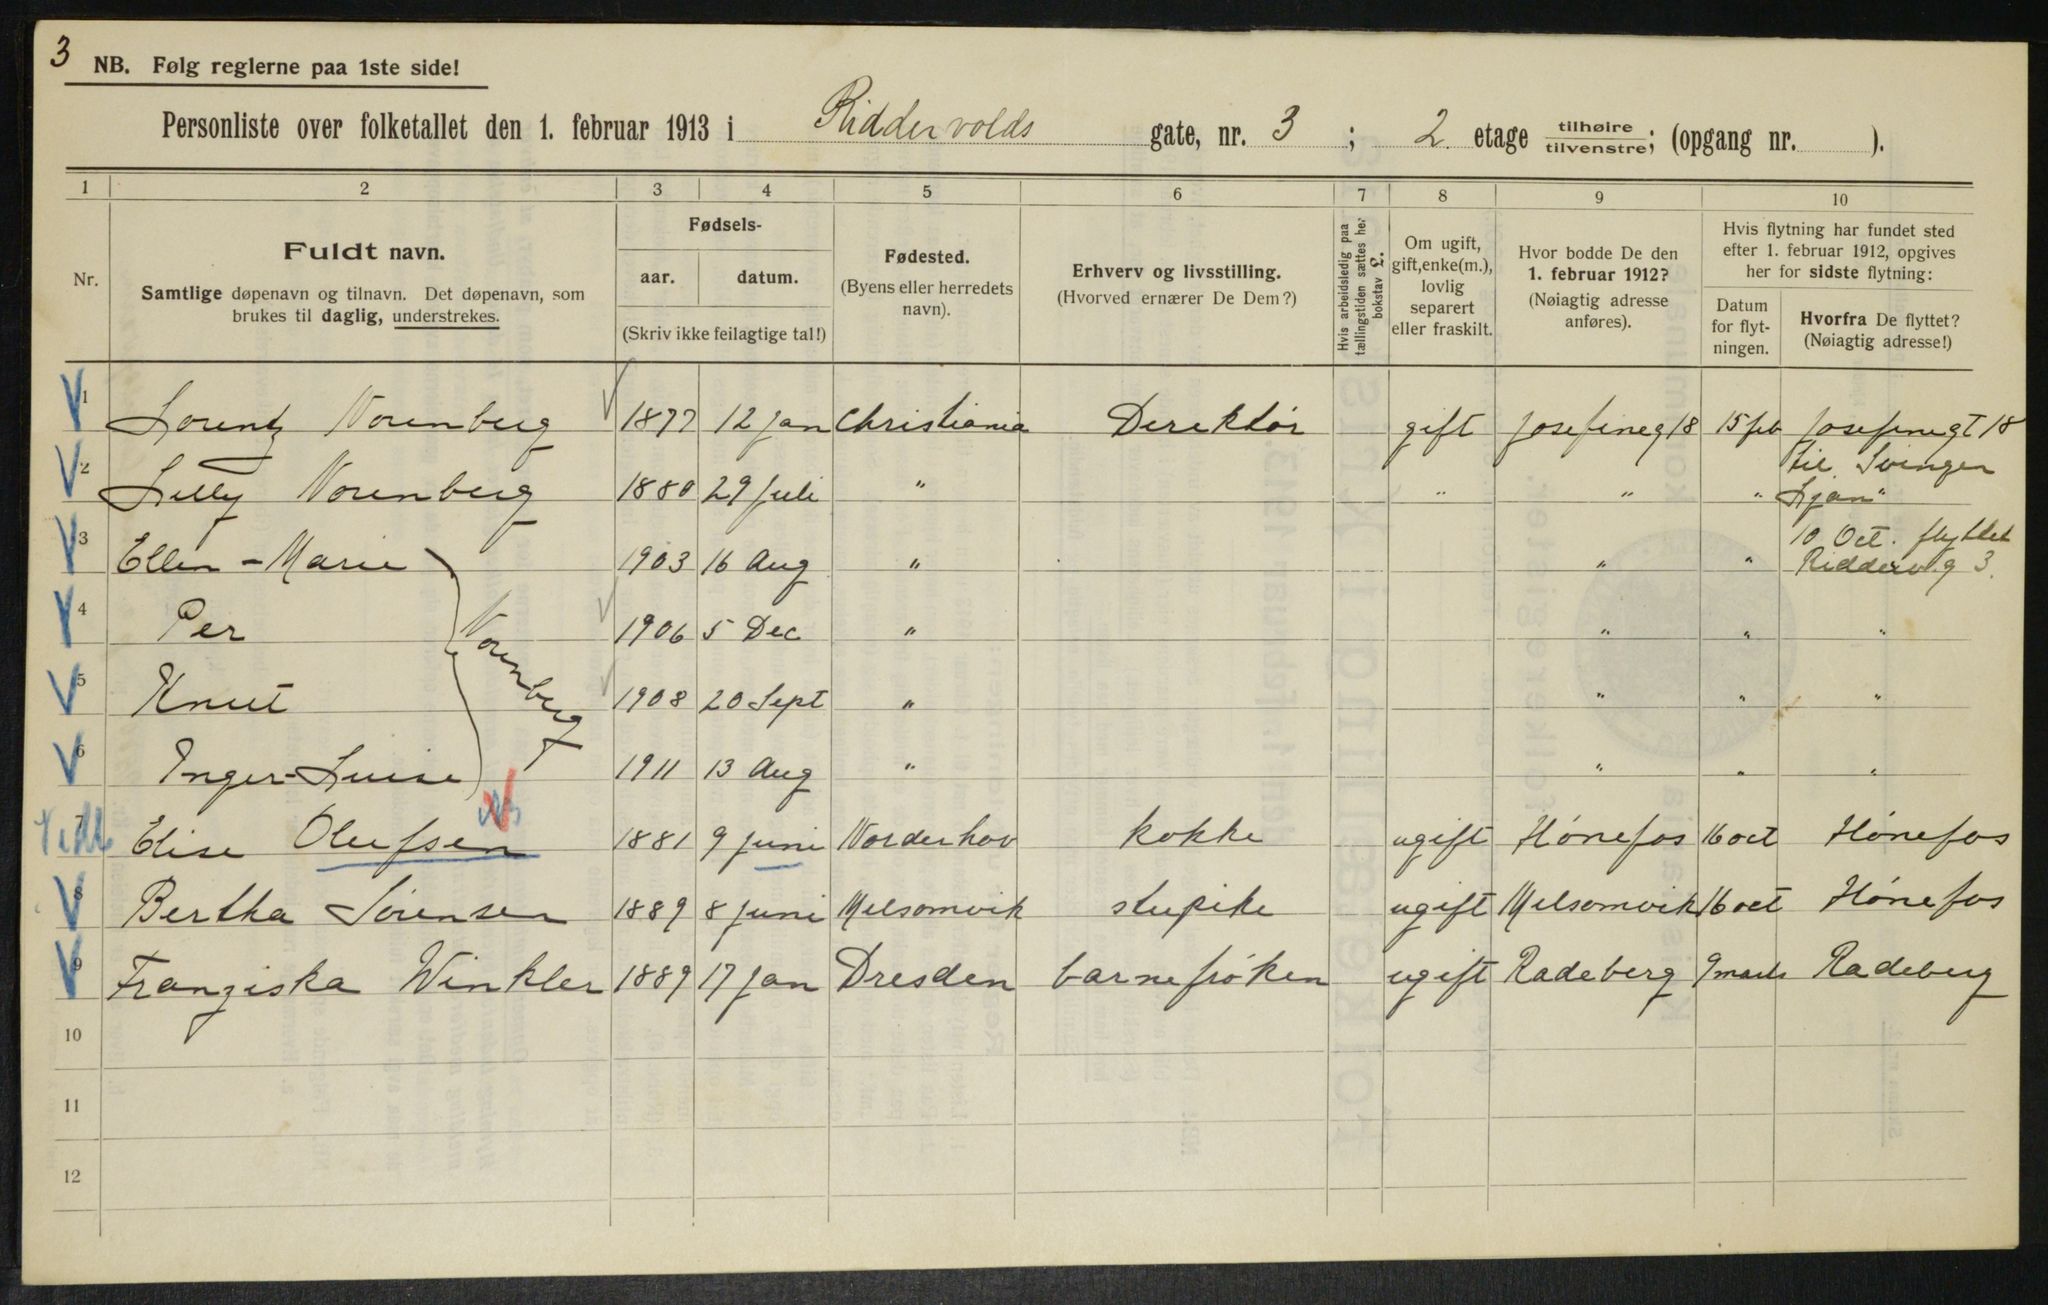 3
NB. Følg reglerne paa 1ste side!
Personliste over folketallet den 1. februar 1913 i Riddervolds gate, nr. 3 ; 2 etage tilhøire/tilvenstre; (opgang nr. ).
1 2 3 4 5 6 7 8 9 10
Nr.
Fuldt navn.
Samtlige døpenavn og tilnavn. Det døpenavn, som
brukes til daglig, understrekes.
Fødsels-
aar. datum.
(Skriv ikke feilagtige tal!)
Fødested.
(Byens eller herredets
navn).
Erhverv og livsstilling.
(Hvorved ernærer De Dem?)
Hvis arbeidsledig paa
tællingstiden sættes her
bokstav £.
Om ugift,
gift, enke(m.),
lovlig
separert
eller fraskilt.
Hvor bodde De den
1. februar 1912?
(Nøiagtig adresse
anføres).
Hvis flytning har fundet sted
efter 1. februar 1912, opgives
her for sidste flytning:
Datum
for flyt-
ningen.
Hvorfra De flyttet?
(Nøiagtig adresse!)
1 Lorentz Norenberg 1877 12 Jan Christiania Direktør gift Josefineg 18 15 feb Josefinegt 18
til Svinger
2 Lilly Norenberg 1880 29 Juli " " " " Ljan "
10 Oct. flyttet
3 Ellen-Marie 1903 16 Aug " " " Ridderv. g 3.
4 Per Norenberg 1906 5 Dec " " " "
5 Knut 1908 20 Sept " " " "
6 Inger-Luise 1911 13 Aug " " " "
7 Elise Olufsen 1881 9 Juni Norderhov kokke ugift Hønefos 16 oct Hønefos
8 Bertha Sørensen 1889 8 Juni Melsomvik stupike ugift Melsomvik 16 oct Hønefos
9 Franziska Winkler 1889 17 Jan Dresden barnefrøken ugift Radeberg 9 marts Radeberg
10
11
12